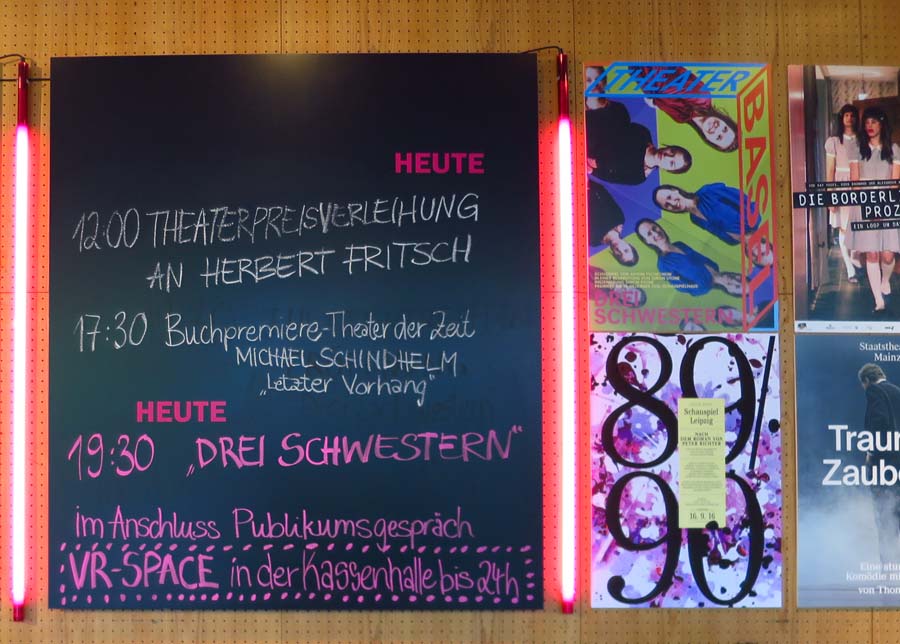 HEUTE
12:00 THEATERPREISVERLEIHUNG
AN HERBERT FRITSCH
17:30 Buchpremiere-Theater der Zeit
MICHAEL SCHINDHELM
„Letzter Vorhang"
HEUTE
19:30 „DREI SCHWESTERN"
im Anschluss Publikumsgespräch
VR-SPACE in der Kassenhalle bis 24h
THEATER
BASEL
DREI
SCHWESTERN
DIE BORDERL
PROZ
EIN LOOP UM DA
89/
90
Schauspiel
Leipzig
NACH
DEM ROMAN VON
PETER RICHTER
16. 9. 16
Staatsthe
Mainz
Traum
Zaube
Eine stu
Komödie mi
von Thom